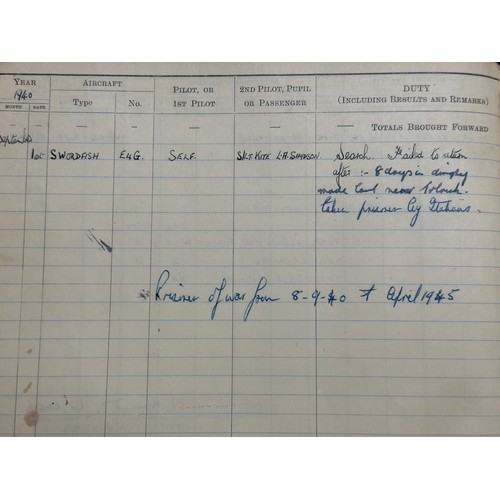 YEAR
1940
AIRCRAFT
PILOT, OR
1ST PILOT
2ND PILOT, PUPIL
OR PASSENGER
DUTY
(INCLUDING RESULTS AND REMARKS)
MONTH DATE Type No.
TOTALS BROUGHT FORWARD
September
1st SWORDFISH E4G. SELF. S/LT KITE L.A. SIMPSON. Search. Failed to return
after :- 8 days in dinghy
made land near Tobruk.
taken prisoner by Italians.
Prisoner of war from 8-9-40 to April 1945